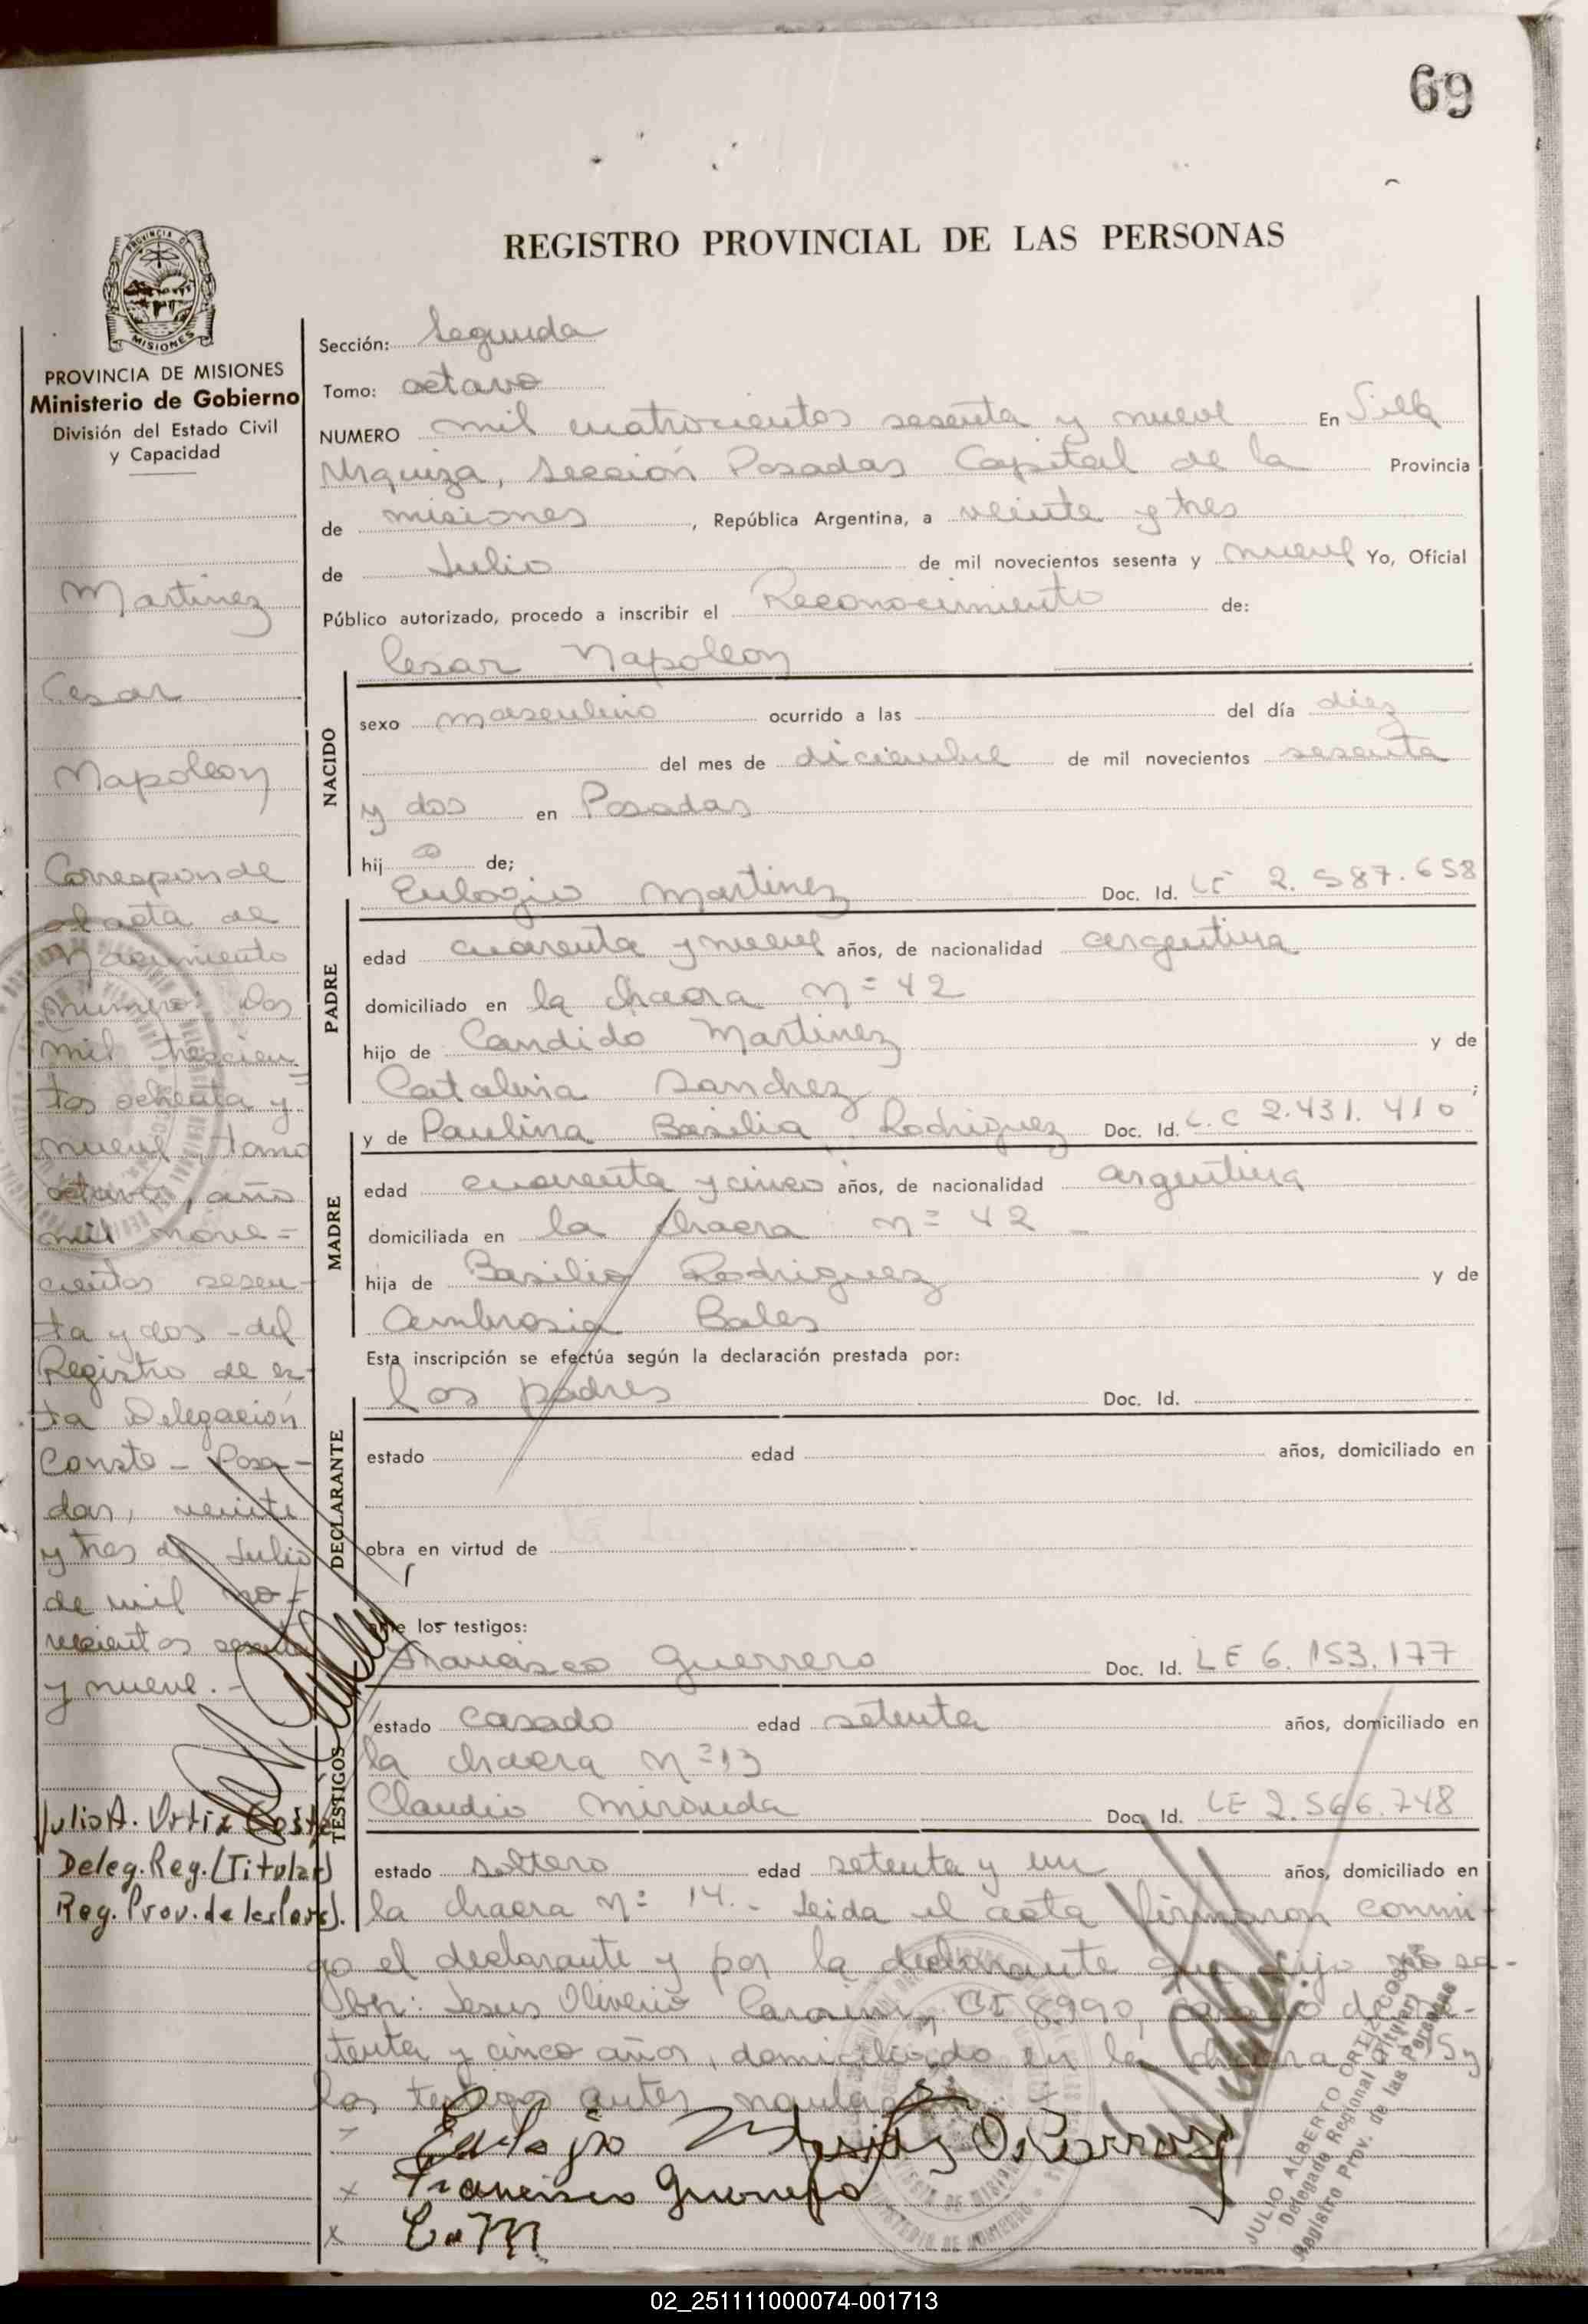 69
REGISTRO PROVINCIAL DE LAS PERSONAS
PROVINCIA DE MISIONES
Ministerio de Gobierno
División del Estado Civil
y Capacidad
Martinez
Cesar
Napoleon
Corresponde
al acta de
Nacimiento
numero: dos
mil trescien
tos ochenta y
nueve, tomo
octavo, año
mil nove=
cientos sesen-
ta y dos - del
Registro de es-
ta Delegación
Conste - Posa-
das, veinte
y tres de Julio
de mil no-
vecientos sesenta
y nueve.-
Julio A. Ortiz Costa
Deleg. Reg. (Titular)
Reg. Prov. de las Pers).
Sección: Segunda
Tomo: octavo
NUMERO mil cuatrocientos sesenta y nueve En Villa
Urquiza, Sección Posadas Capital de la Provincia
de misiones, República Argentina, a veinte y tres
de Julio de mil novecientos sesenta y nueve Yo, Oficial
Público autorizado, procedo a inscribir el Reconocimiento de:
Cesar Napoleon
NACIDO
sexo masculino ocurrido a las del día diez
del mes de diciembre de mil novecientos sesenta
y dos en Posadas
hij o de;
Eulogio Martinez Doc. Id. LE 2.587.658
PADRE
edad cuarenta y nueve años, de nacionalidad argentina
domiciliado en la chacra nº 42
hijo de Candido Martinez y de
Catalina Sanchez;
y de Paulina Basilia Rodriguez Doc. Id. L.C 2.431.410
MADRE
edad cuarenta y cinco años, de nacionalidad argentina
domiciliada en la chacra nº 42 -
hija de Basilio Rodriguez y de
Ambrosia Bales
Esta inscripción se efectúa según la declaración prestada por:
los padres Doc. Id.
DECLARANTE
estado edad años, domiciliado en
obra en virtud de
ante los testigos:
Francisco Guerrero Doc. Id. LE 6.153.177
TESTIGOS
estado casado edad setenta años, domiciliado en
la chacra nº 13
Claudio Miranda Doc. Id. LE 2.566.748
estado soltero edad setenta y un años, domiciliado en
la chacra nº 14.- Leida el acta firmaron conmi-
go el declarante y por la declarante que dijo no sa-
ber: Jesus Oliverio CI 8990, casado de
tenta y cinco años, domiciliado en la chacra
los testigos antes
Eulojio
Francisco Guerrero
C.M
JULIO ALBERTO ORTIZ COSTA
Delegado Regional (Titular)
Registro Prov. de las Personas
02_251111000074-001713